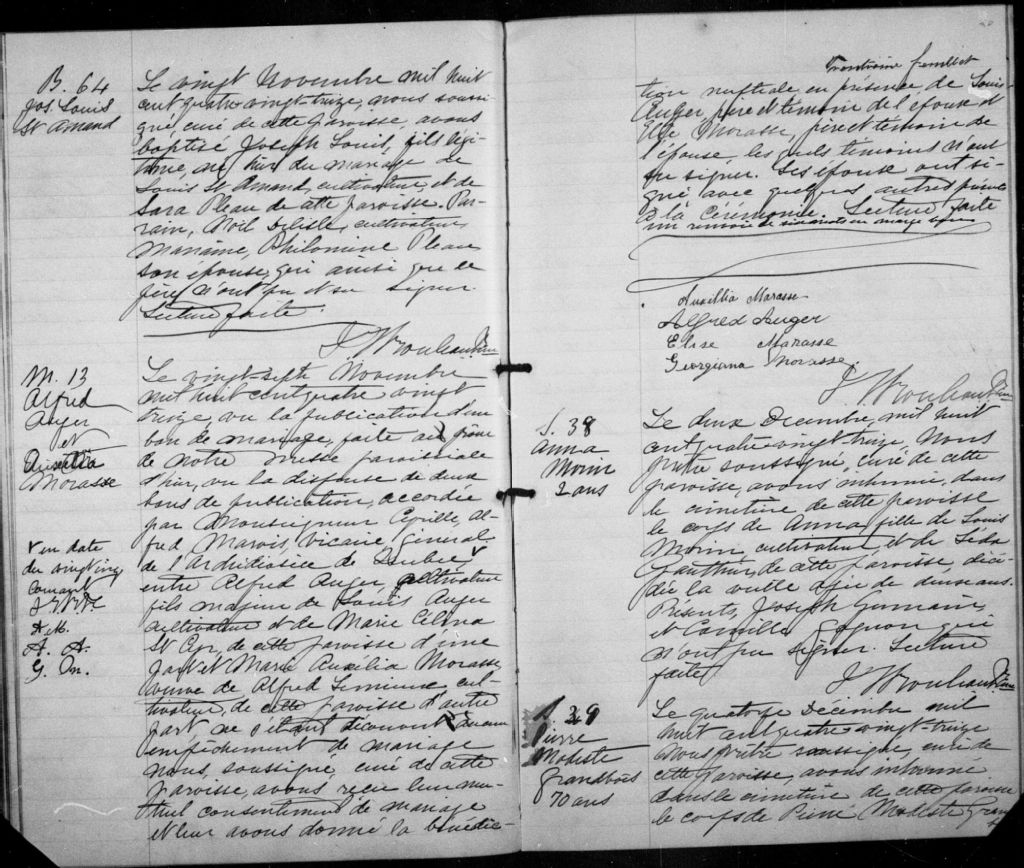 B. 64
Jos. Louis
St Amand
Le vingt Novembre mil huit
cent quatre vingt-treize, nous soussi-
gné, curé de cette paroisse, avons
baptisé Joseph Louis, fils légi-
time, né hier du mariage de
Louis St Amand, cultivateur, et de
Sara Pleau de cette paroisse. Par-
rain, Noel Delisle, cultivateur,
Marraine, Philomène Pleau
son épouse, qui ainsi que le
père n'ont pu et su signer.
Lecture faite.
J. Rouleau
M. 13
Alfred
Auger
et
Auxilia
Morasse
Le vingt-sept Novembre
mil huit cent quatre vingt
treize, vu la publication d'un
ban de mariage, faite au prône
de notre messe paroissiale
d'hier, vu la dispense de deux
bans de publication, accordée
par Monseigneur Cyrille, Al-
fred, Marois, Vicaire Général
de l'Archidiocèse de Québec
entre Alfred Auger, cultivateur
fils majeur de Louis Auger
cultivateur et de Marie Célina
St Cyr, de cette paroisse d'une
part et Marie Auxilia Morasse,
veuve de Alfred Lemieux, cul-
tivateur, de cette paroisse d'autre
part, ne s'étant découvert aucun
empêchement de mariage
nous, soussigné, curé de cette
paroisse, avons reçu leur mu-
tuel consentement de mariage
et leur avons donné la bénédic-
en date
du vingt cinq
courant
A. M.
A. A.
G. M.
tion nuptiale en présence, de Louis
Auger, père et témoin de l'époux et
Morasse, père et témoin de
l'épouse, lesquels témoins n'ont
su signer. Les époux ont si-
gné avec quelques autres présents
à la cérémonie. Lecture faite
un renvoi de en marge
Auxillia Marasse
Alfred Auger
Elise Marasse
Georgiana Morasse.
J. Rouleau
S. 38
Anna
Morin
2 ans
Le deux Décembre, mil huit
cent quatre-vingt-treize, Nous
prêtre soussigné, curé de cette
paroisse, avons inhumé, dans
le cimetière de cette paroisse
le corps de Anna, fille de Louis
Morin, cultivateur, et de Léda
Gauthier, de cette paroisse, décé-
dée la veille agée de deux ans.
Présents, Joseph Germain,
et Camille Gagnon qui
n'ont pu signer. Lecture
faite
J. Rouleau
S. 39
Pierre
Modeste
Grandbois
70 ans
Le quatorze Décembre mil
huit cent quatre vingt-treize
Nous prêtre soussigné, curé de
cette paroisse, avons inhumé
dans le cimetière de cette paroisse
le corps de Pierre Modeste Grand